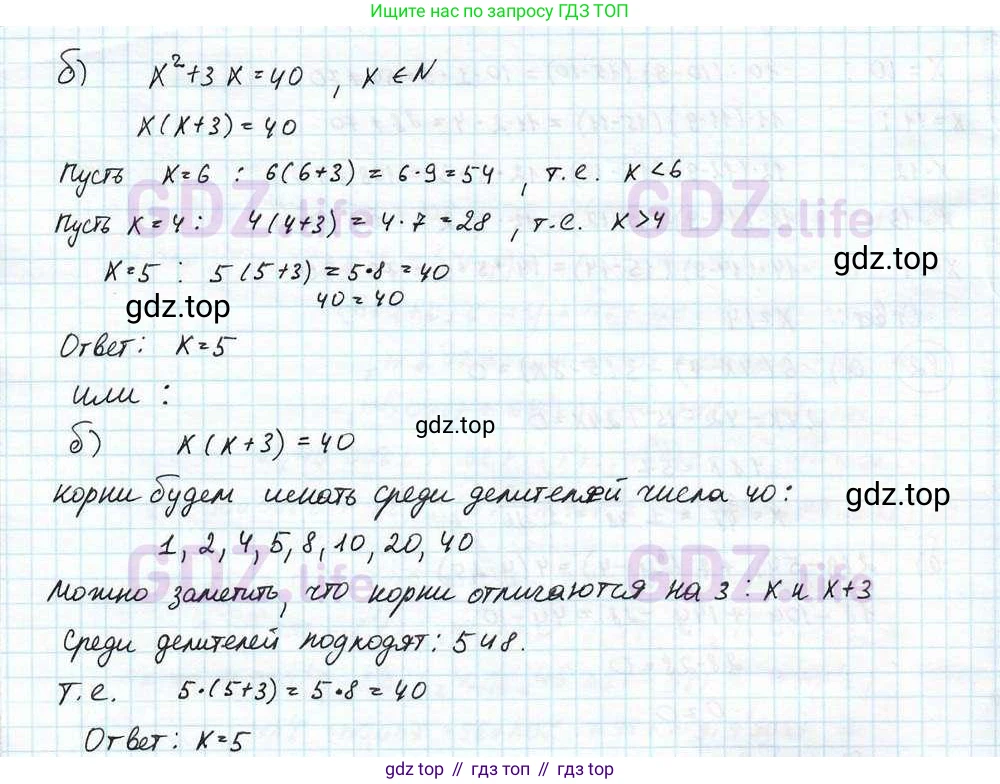 Ищите нас по запросу ГДЗ ТОП
б) x² + 3x = 40, x ∈ N
x(x+3) = 40
Пусть x=6 : 6(6+3) = 6·9 = 54, т.е. x < 6
GDZ.life GDZ.life
Пусть x=4 : 4(4+3) = 4·7 = 28, т.е. x > 4
gdz.top
x=5 : 5(5+3) = 5·8 = 40
40 = 40
gdz.top
Ответ: x=5
или :
gdz.top
б) x(x+3) = 40
корни будем искать среди делителей числа 40:
gdz.top
1, 2, 4, 5, 8, 10, 20, 40
GDZ.life GDZ.life
Можно заметить, что корни отличаются на 3 : x и x+3
Среди делителей подходят: 5 и 8.
т.е. 5·(5+3) = 5·8 = 40
Ответ: x=5
gdz top // гдз топ // gdz.top